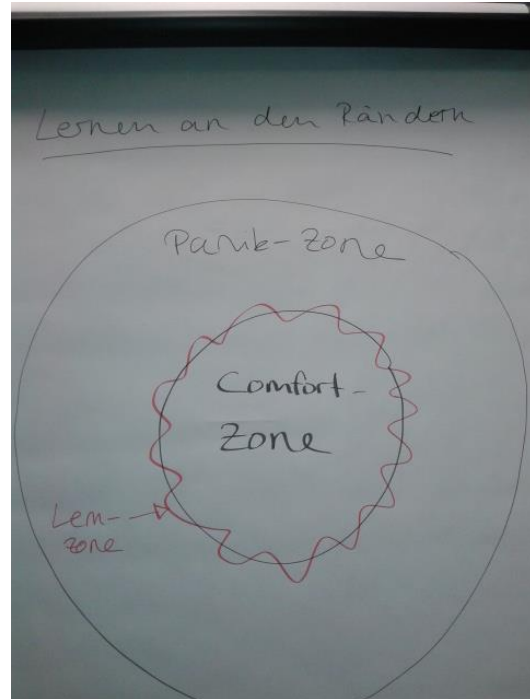 Lernen an den Rändern
Panik-Zone
Comfort-
Zone
Lern-
zone